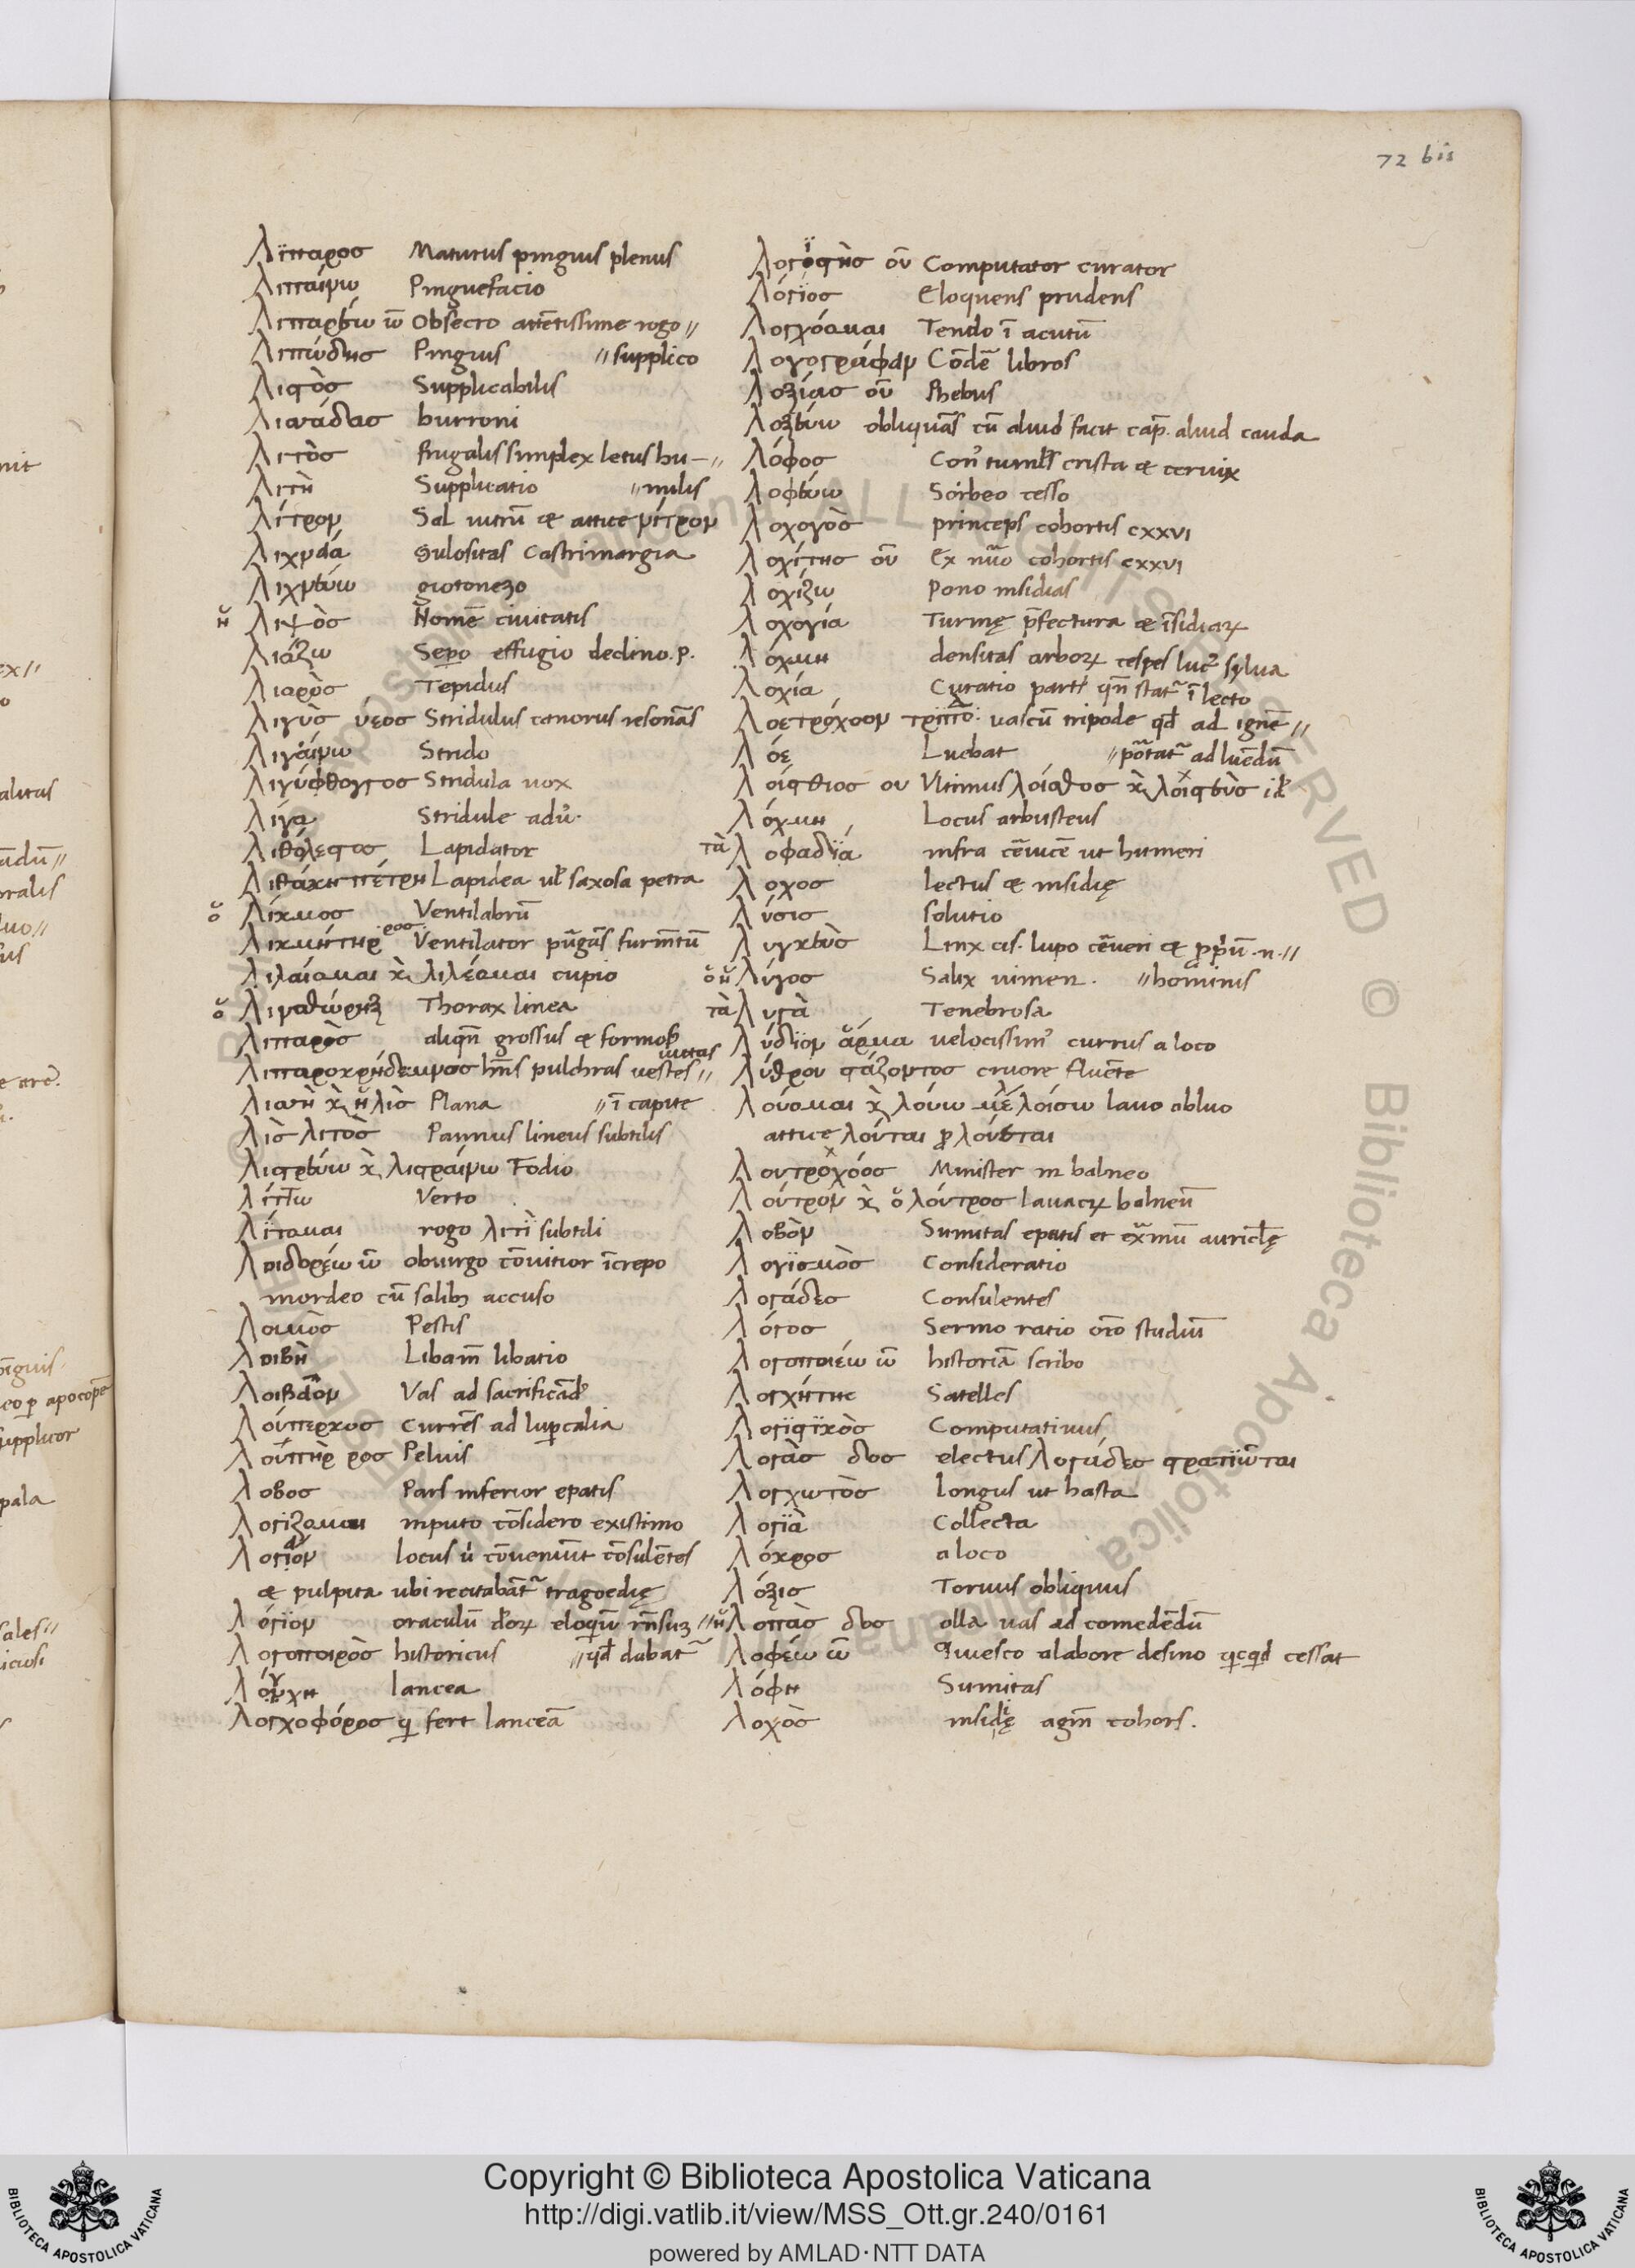 72 bis
Λϊπαρος Maturus pinguis plenus
Λιπαίνω Pinguefacio
Λιπαρέω ῶ Obsecro attētissime rogo //
Λιπώδης Pinguis // supplico
Λιστὸς Supplicabilis
Λιμνάδας burroni
Λιτὸς frugalis simplex letus hu- //
Λιτὴ Supplicatio // milis
Λίτρον Sal nitrū et attice νίτρον
Λιχνεία Gulositas Castrimargia
Λιχνεύω giotonezo
ἡ Λιψὸς Nomē civitatis
Λιάζω Sepo effugio declino .p.
Λιαρὸς Tepidus
Λιγὺς ύεος Stridulus canorus resonās
Λιγαίνω Strido
Λιγύφθογγος Stridula vox
Λίγα Stridule adv.
Λιθόλεστος Lapidator
Λιθάκη πέτρη Lapidea vel saxosa petra
ὁ Λίκμος Ventilabrū
Λικμήτηρ ρος Ventilator pūgās furmētū
Λιλαίομαι κ λιλέομαι cupio
ὁ Λινοθώρηξ Thorax linea
Λιπαρὸς aliqn̄ grossus et formos
Λιποροκρήδεμνος hn̄s pulchras vestes // vittas
Λιανὴ κ ἡ λὶς Plana // ī capite
Λὶς λιτὸς Pannus lineus subtilis
Λιστρεύω κ λιστραίνω Fodio
Λίττω Verto
Λίτομαι rogo λιτὶ subtili
Λοιδορέω ῶ obiurgo cōvitior īcrepo
mordeo cū salibꝫ accuso
Λοιμὸς Pestis
Λοιβὴ Libam̄ libatio
Λοιβεῖον Vas ad sacrificād
Λούπερκος Currēs ad lupcalia
Λουτὴρ ρος Pelvis
Λοβος Pars inferior epatis
Λογίζομαι inputo cōsidero existimo
Λογεῖον locus ū cōveniūt cōsulētes
et pulpita ubi recitabāt tragoedię
Λόγιον oraculū eloquiū //
Λογοποιὸς historicus // qd dabat
Λόγχη lancea
Λογχοφόρος q fert lanceā
Λογιστὴς οῦ Computator curator
Λόγϊος Eloquens prudens
Λογχόομαι Tendo ī acutū
Λογογράφειν Cōdē libros
Λοξίας οῦ Phebus
Λοξεύω obliquās cū aliud facit cap. aliud cauda
Λόφος Con tumuls crista et cervix
Λοφεύω Sorbeo cesso
Λοχαγὸς princeps cohortis cxxvi
Λοχίτης οῦ Ex nūo cohortis cxxvi
Λοχίζω Pono insidias
Λοχαγία Turmę p̄fectura et īsidiaꝝ
Λόχμη densitas arboꝝ cespes luc sylva
Λοχία Curatio part qn̄ stat ī lecto
Λοετρόχοον τρίπο vascū tripode qd ad ignē //
Λόε Luebat // pōtat ad luēdū
Λοίσθιος ου Ultimus λοίσθος κ λοιστεὺς id
Λόχμη Locus arbusteus
τὰ Λοφαδϊά infra cēvicē ut humeri
Λοχος lectus et insidię
Λύσις solutio
Λυγκεὺς Linx cis. lupo cēveri et pprū .n. //
ὁ ἡ Λύγος Salix vimen. // hominis
τὰ Λυγὰ Tenebrosa
Λύδϊον ἅρμα velocissim currus a loco
Λύθρου στάζοντος cruore fluēte
Λούομαι κ λούω λοίσω lavo abluo
attice λοῦται p λούεται
Λουτροχόος Minister in balneo
Λούτρον κ ὁ λούτρος lavacꝝ balneū
Λοβὸν Sumitas epatis et ex̄mū auriclę
Λογϊσμὸς Consideratio
Λογάδες Consulentes
Λόγος Sermo ratio orō studiū
Λογοποιέω ῶ historiā scribo
Λογχήτης Satelles
Λογϊστϊκὸς Computativus
Λογὰς δος electus λογάδες στρατϊῶται
Λογχωτὸς Longus ut hasta
Λογϊὰ Collecta
Λόκρος a loco
Λόξις Torvus obliquus
ἡ Λοπὰς δος olla vas ad comedēdū
Λοφέω ῶ Quiesco a labore desino qcqd cessat
Λόφη Sumitas
Λοχὸς insidię agm̄ cohors.
Copyright © Biblioteca Apostolica Vaticana
http://digi.vatlib.it/view/MSS_Ott.gr.240/0161
powered by AMLAD·NTT DATA
BIBLIOTECA APOSTOLICA VATICANA
BIBLIOTECA APOSTOLICA VATICANA